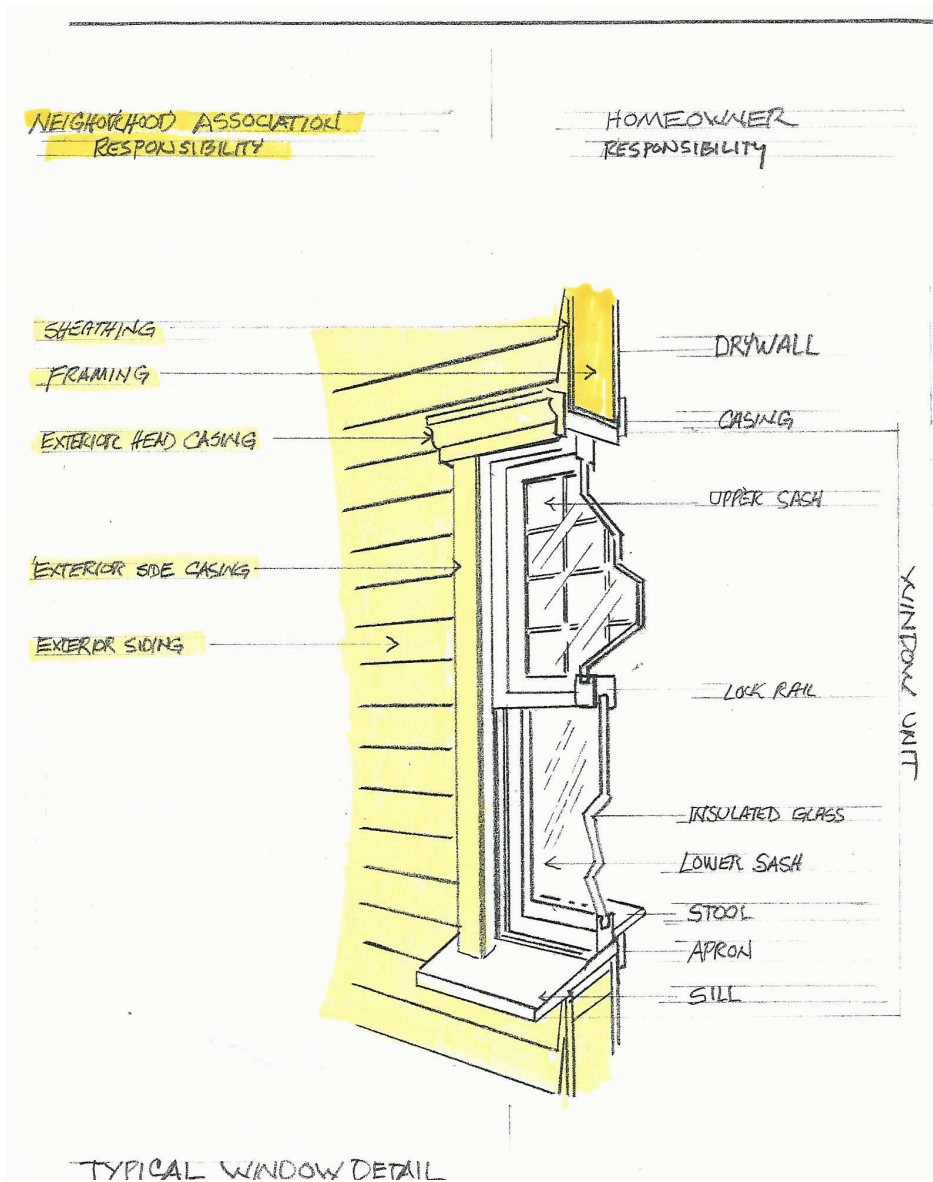 NEIGHORHOOD ASSOCIATION
RESPONSIBILITY
HOMEOWNER
RESPONSIBILITY
SHEATHING
FRAMING
EXTERIOR HEAD CASING
EXTERIOR SIDE CASING
EXTERIOR SIDING
DRYWALL
CASING
UPPER SASH
LOCK RAIL
INSULATED GLASS
LOWER SASH
STOOL
APRON
SILL
WINDOW UNIT
TYPICAL WINDOW DETAIL